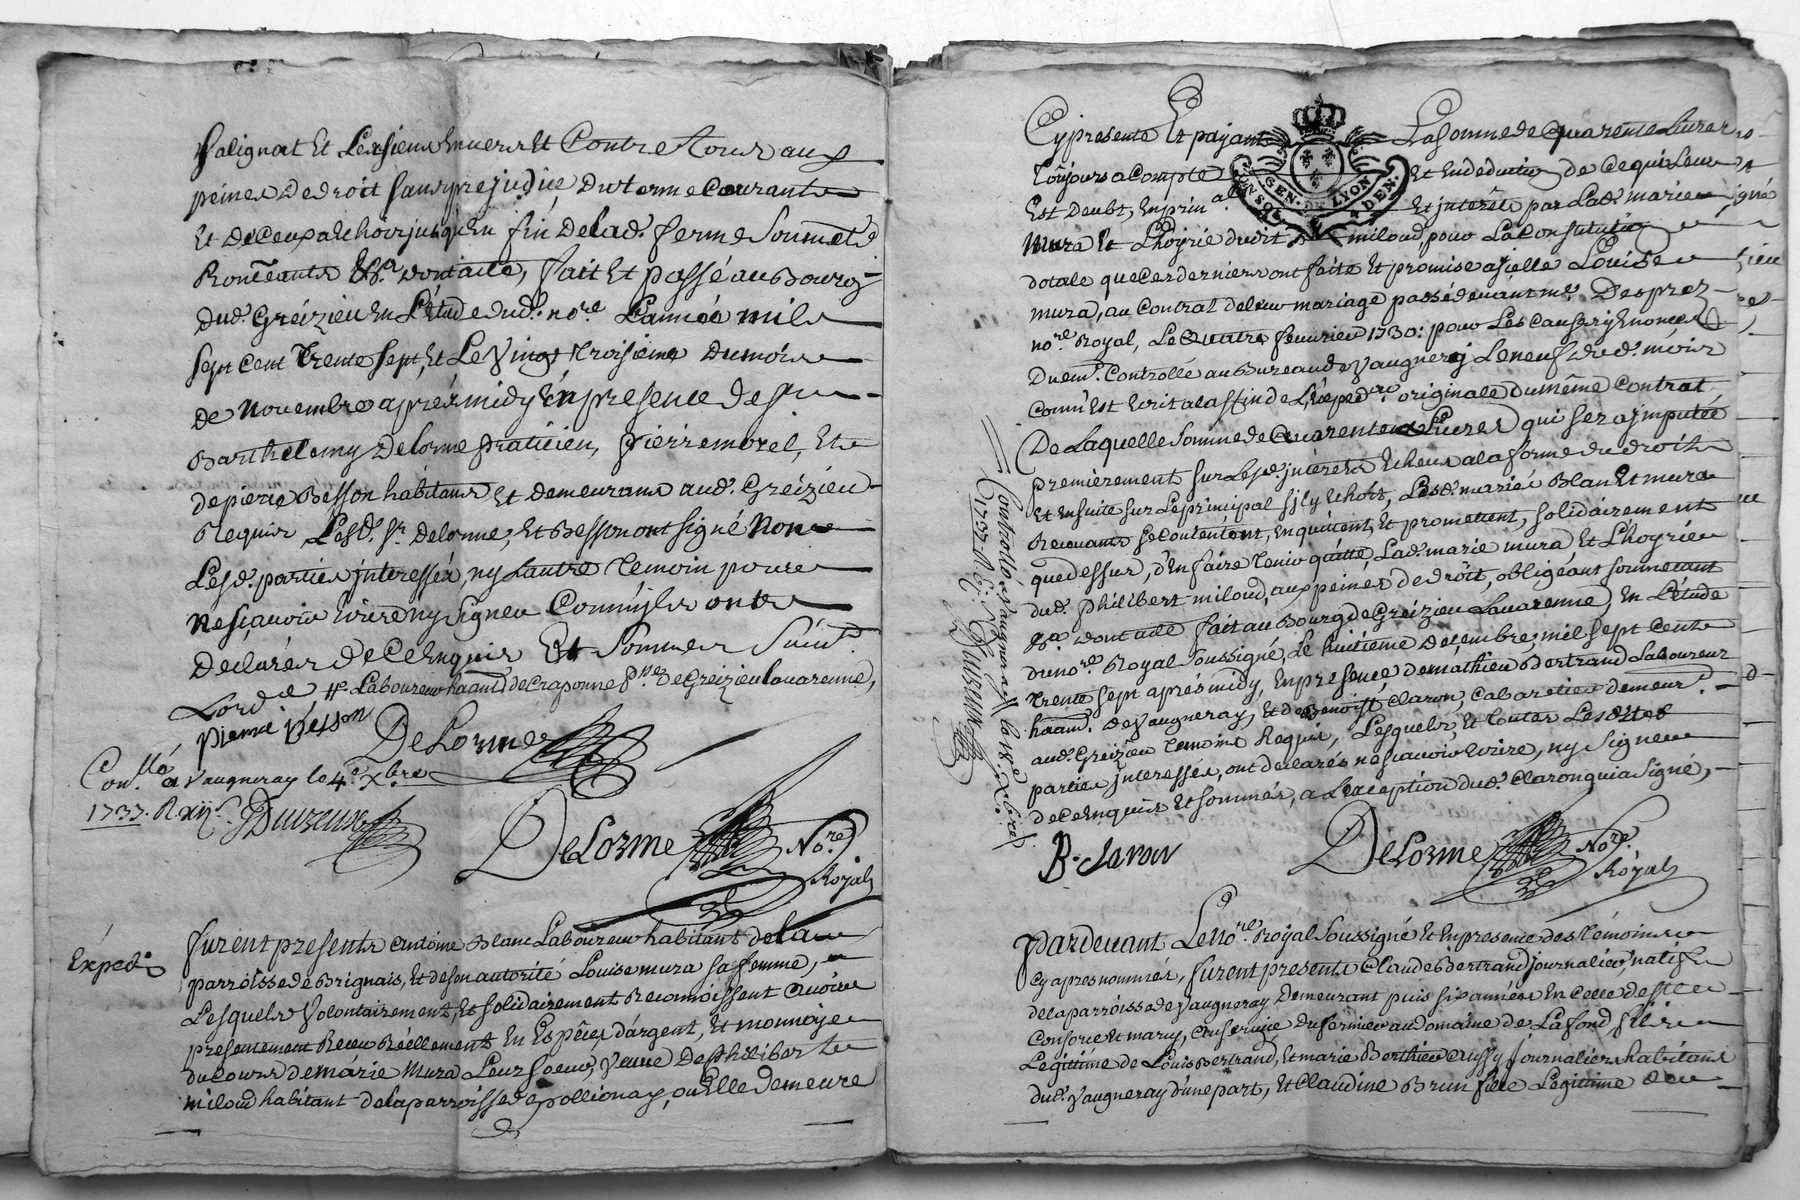 Salignat Et Les siens Envers Et Contre Tous aux
peines De droit sans prejudice Du terme Courant
Et De Ceux a Echoir jusqu'en fin De lad. ferme Soumett.
Renoncants &a. dont acte, fait Et passé au Bourg
dud. Greizieu En L'étude dud. no.re L'année mil
sept Cent Trente sept, Et Le Vingt Troisieme Du mois
de Novembre apres midy En presence De sr.
Barthelemy Delorme praticien, pierre morel, Et
de pierre Besson habitans Et demeurans aud. Greizieu
Requis Lesd. Sr. Delorme, Et Besson ont signé Non
Lesd. parties interessés, ny Lautre Temoin pour
Ne sçavoir Ecrire ny Signer Comm'ils onts
Declarés De Ce Enquis Et Sommés Suivt.
Lord.e Laboureur haant. de Craponne p.sse De Greizieu lavarenne,
pierre besson DeLorme
Con.llé a Vaugneray le 4.e Xbre
1737. R. xij s. Duizeux
DeLorme No.re
Royal
Expéd.
furent presents Antoine Blanc Laboureur habitant de la
parroisse de Brignais, Et de son autorité Louise mura sa femme,
Lesquels Volontairement, Et solidairement Reconnoissent avoir
presentement Receu Réellement En Especes d'argent, Et monnoye
du cours de marie Mura Leur soeur, Veuve De Philibert
miloud habitant de la parroisse de pollionay, ou Elle demeure
Cy presente Et payant La somme de Quarente Livres
Toujours a Compte Et En deduction de Ce qui Leur
Est Deubt, En prin.al Et interêts par Lad. marie
GEN. DE LYON
4 DEN.
Mura Et L'hoyrie dudit miloud, pour La Constitution
dotale que Ces derniers ont faite Et promise a jcelle Louise
mura, au Contrat de leur mariage passé devant me. Desprez
no.re Royal, Le Quatre fevrier 1730: pour Les Causes y Enoncés
Duem.t Controllé au Bureau de Vaugneray Le neuf dud. mois
Comm'Est Ecrit a la ffin de L'exped.on originale du même Contrat
De Laquelle Somme de Quarente Livres qui sera jmputée
premierement sur Lesd. jnterêts Echeus a la forme du droit
Et Ensuite sur Le principal s'il y Echoit, Lesd. mariés Blanc Et mura
Recevants se Contentent, En quittent, Et promettent, solidairement
que dessus, d'En faire Tenir quitte, Lad. marie mura Et L'hoyrie
dud. philibert miloud, aux peines de droit, obligeant soumettant
&a. dont acte fait au Bourg de Greizieu Lavarenne, En L'étude
du no.re Royal soussigné, Le huitieme Decembre, mil sept Cent
Trente sept aprés midy, En presence de mathieu Bertrand Laboureur
haant. de Vaugneray, Et de Benoist Claron, Cabaretier demeur.t
aud. Greizieu Temoins Requis, Lesquels, Et toutes Lesdites
parties jnteressés, ont declarés ne sçavoir Ecrire, ny Signer
de Ce Enquis Et sommés, a L'exception dud. Claron qui a Signé,
Controllé a Vaugneray le 18.e Xbre
1737. R. Duizeux
B. Claron DeLorme No.re
Royal
Pardevant Le No.re Royal soussigné Et En presence des Témoins
Cy apres nommés, furent presents Claude Bertrand journalier, natif
de la parroisse de Vaugneray Demeurant puis six années En Celle de
Consorce Et mary, au service du fermier au domaine de Lafond fils
Legitime de Louis Bertrand, Et marie Berthier aussy journaliers habitans
dud. Vaugneray d'une part, Et Claudine Brun fille Legitime de